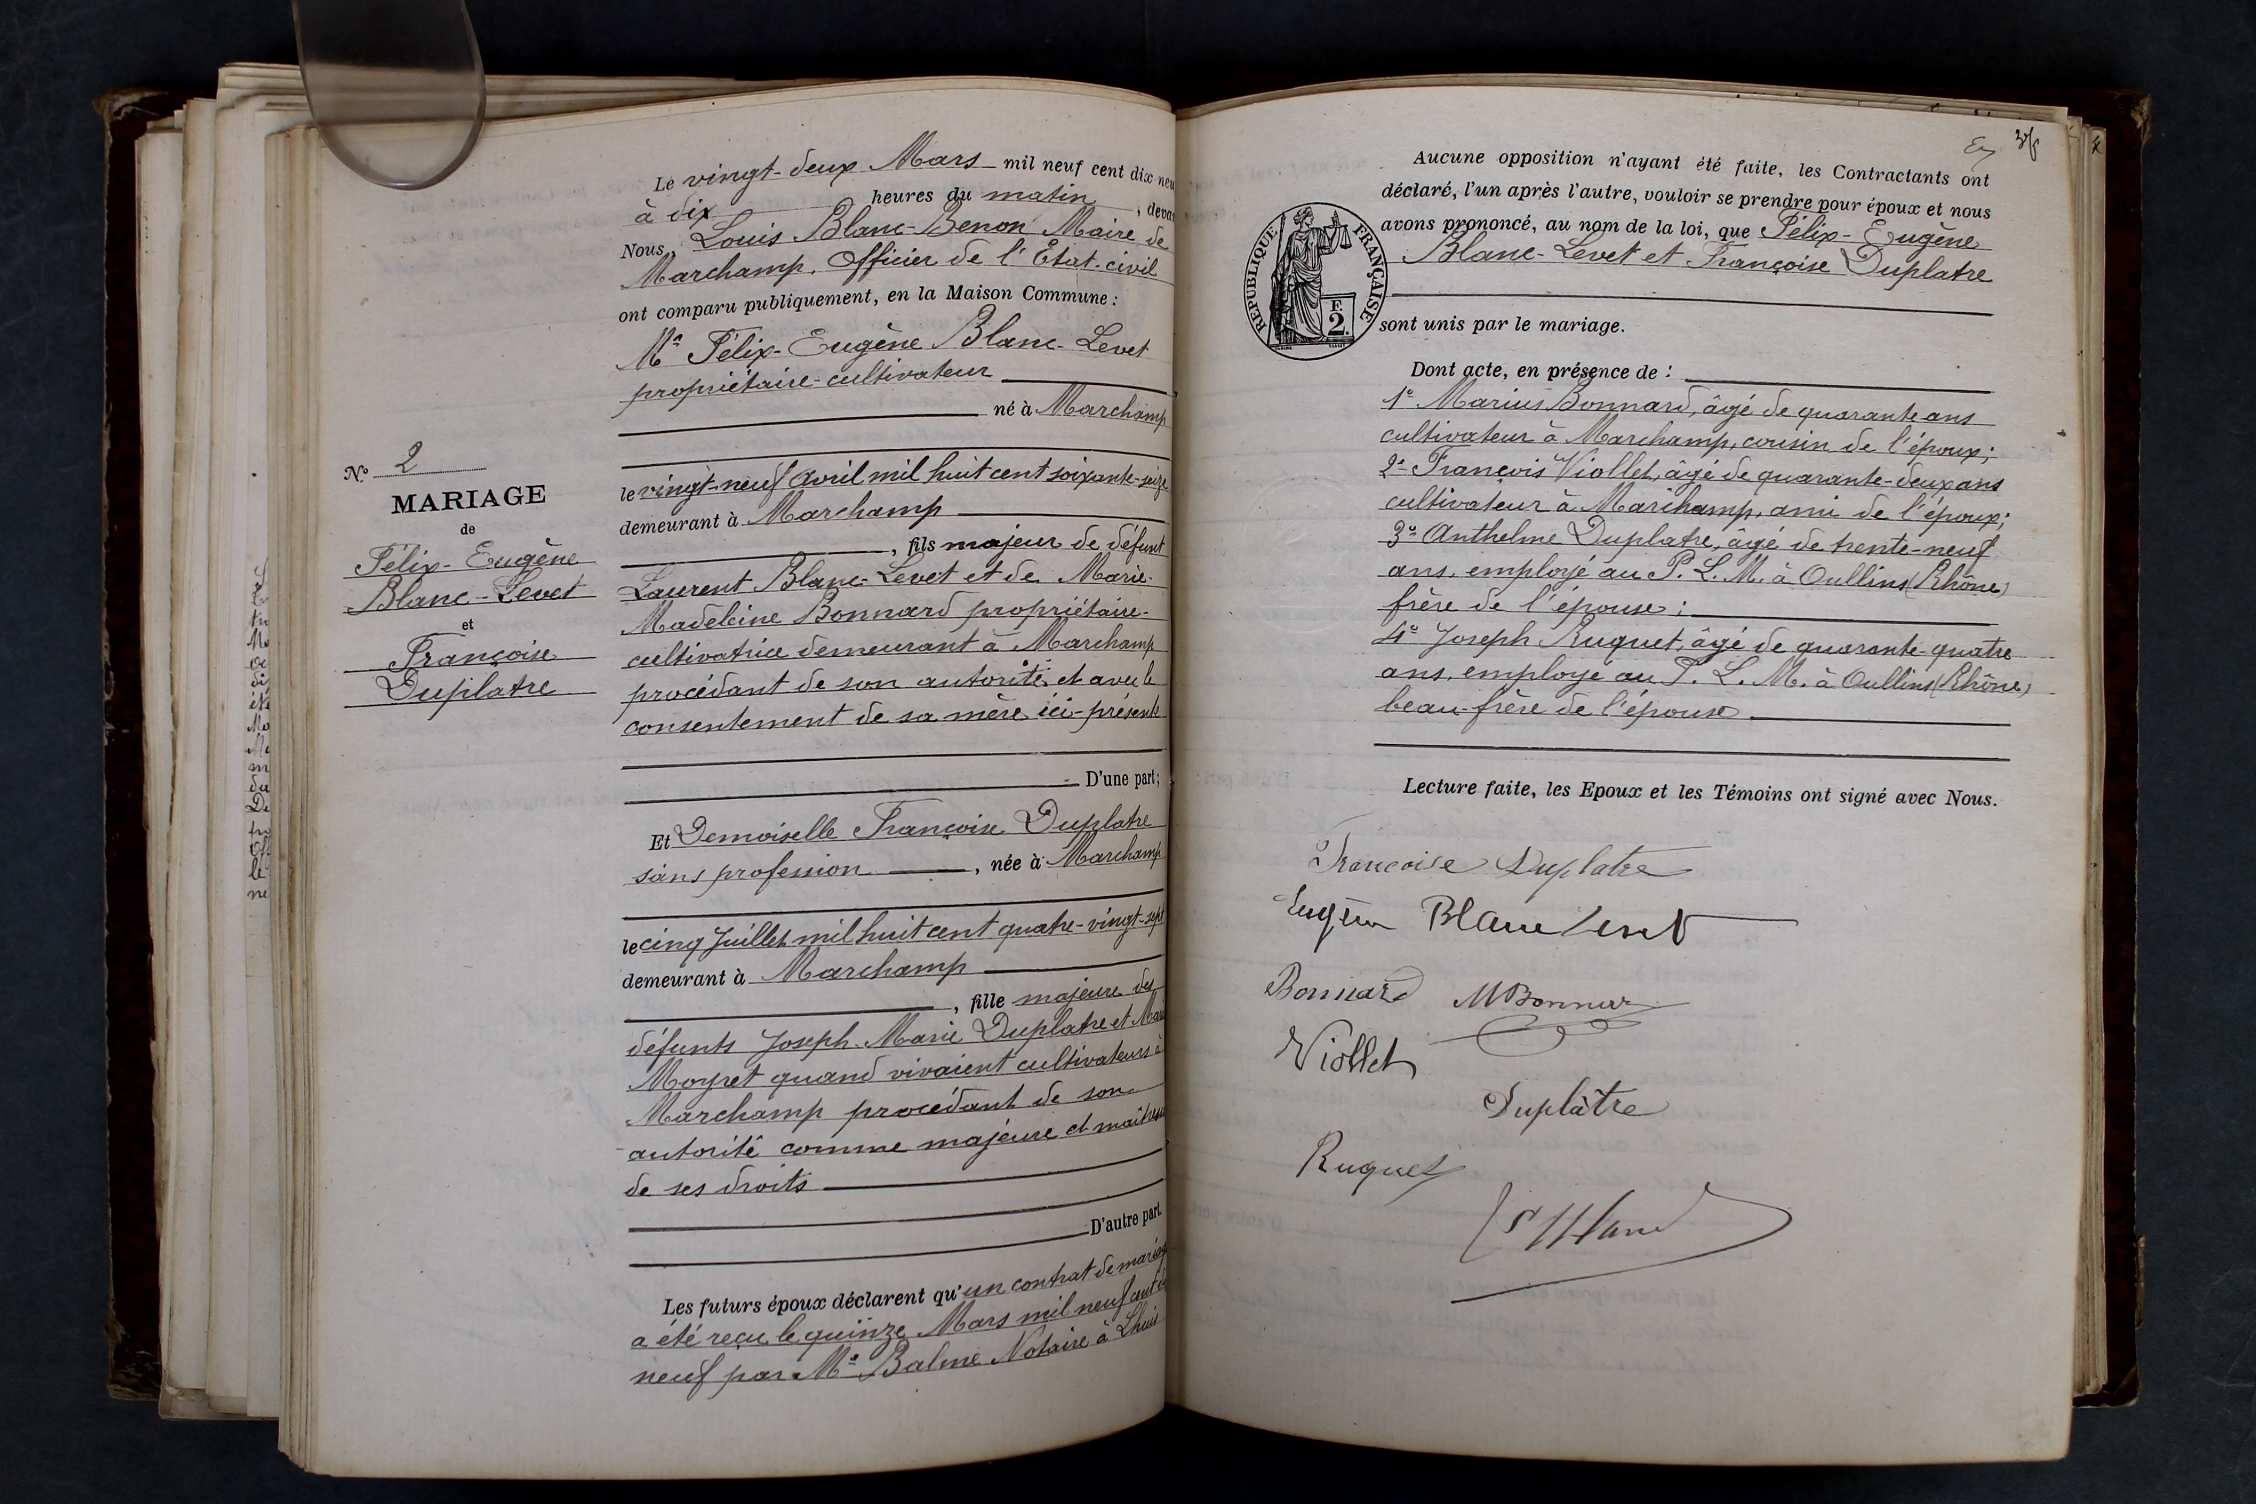 Le vingt-deux Mars mil neuf cent dix neu
à dix heures du matin, deva
Nous, Louis Blanc-Benon Maire de
Marchamp, Officier de l'Etat-civil
ont comparu publiquement, en la Maison Commune :
Mr Félix-Eugène Blanc-Levet
propriétaire-cultivateur
né à Marchamp
le vingt-neuf Avril mil huit cent soixante-seize
demeurant à Marchamp
, fils majeur de défunt
Laurent Blanc-Levet et de Marie-
Madeleine Bonnard propriétaire-
cultivatrice demeurant à Marchamp
procédant de son autorité et avec le
consentement de sa mère ici-présente
D'une part;
Et Demoiselle Françoise Duplatre
sans profession, née à Marchamp
le cinq Juillet mil huit cent quatre-vingt-sept
demeurant à Marchamp
, fille majeure des
défunts Joseph-Marie Duplatre et Marie
Moyret quand vivaient cultivateurs à
Marchamp procédant de son
autorité comme majeure et maîtresse
de ses droits
D'autre part.
Les futurs époux déclarent qu'un contrat de mariage
a été reçu le quinze Mars mil neuf cent dix
neuf par Me Balme Notaire à Lhuis
No 2
MARIAGE
de
Félix-Eugène
Blanc-Levet
et
Françoise
Duplatre
Aucune opposition n'ayant été faite, les Contractants ont
déclaré, l'un après l'autre, vouloir se prendre pour époux et nous
avons prononcé, au nom de la loi, que Félix-Eugène
Blanc-Levet et Françoise Duplatre
sont unis par le mariage.
RÉPUBLIQUE FRANÇAISE
F.
2
Dont acte, en présence de :
1o Marius Bonnard, âgé de quarante ans
cultivateur à Marchamp, cousin de l'époux;
2o François Viollet, âgé de quarante-deux ans
cultivateur à Marchamp, ami de l'époux;
3o Anthelme Duplatre, âgé de trente-neuf
ans, employé au P. L. M. à Oullins (Rhône)
frère de l'épouse;
4o Joseph Ruquet, âgé de quarante-quatre
ans, employé au P. L. M. à Oullins (Rhône)
beau-frère de l'épouse.
Lecture faite, les Epoux et les Témoins ont signé avec Nous.
Francoise Duplatre
Eugène Blanc Levet
Bonnard M Bonnard
Viollet
Duplâtre
Ruquet